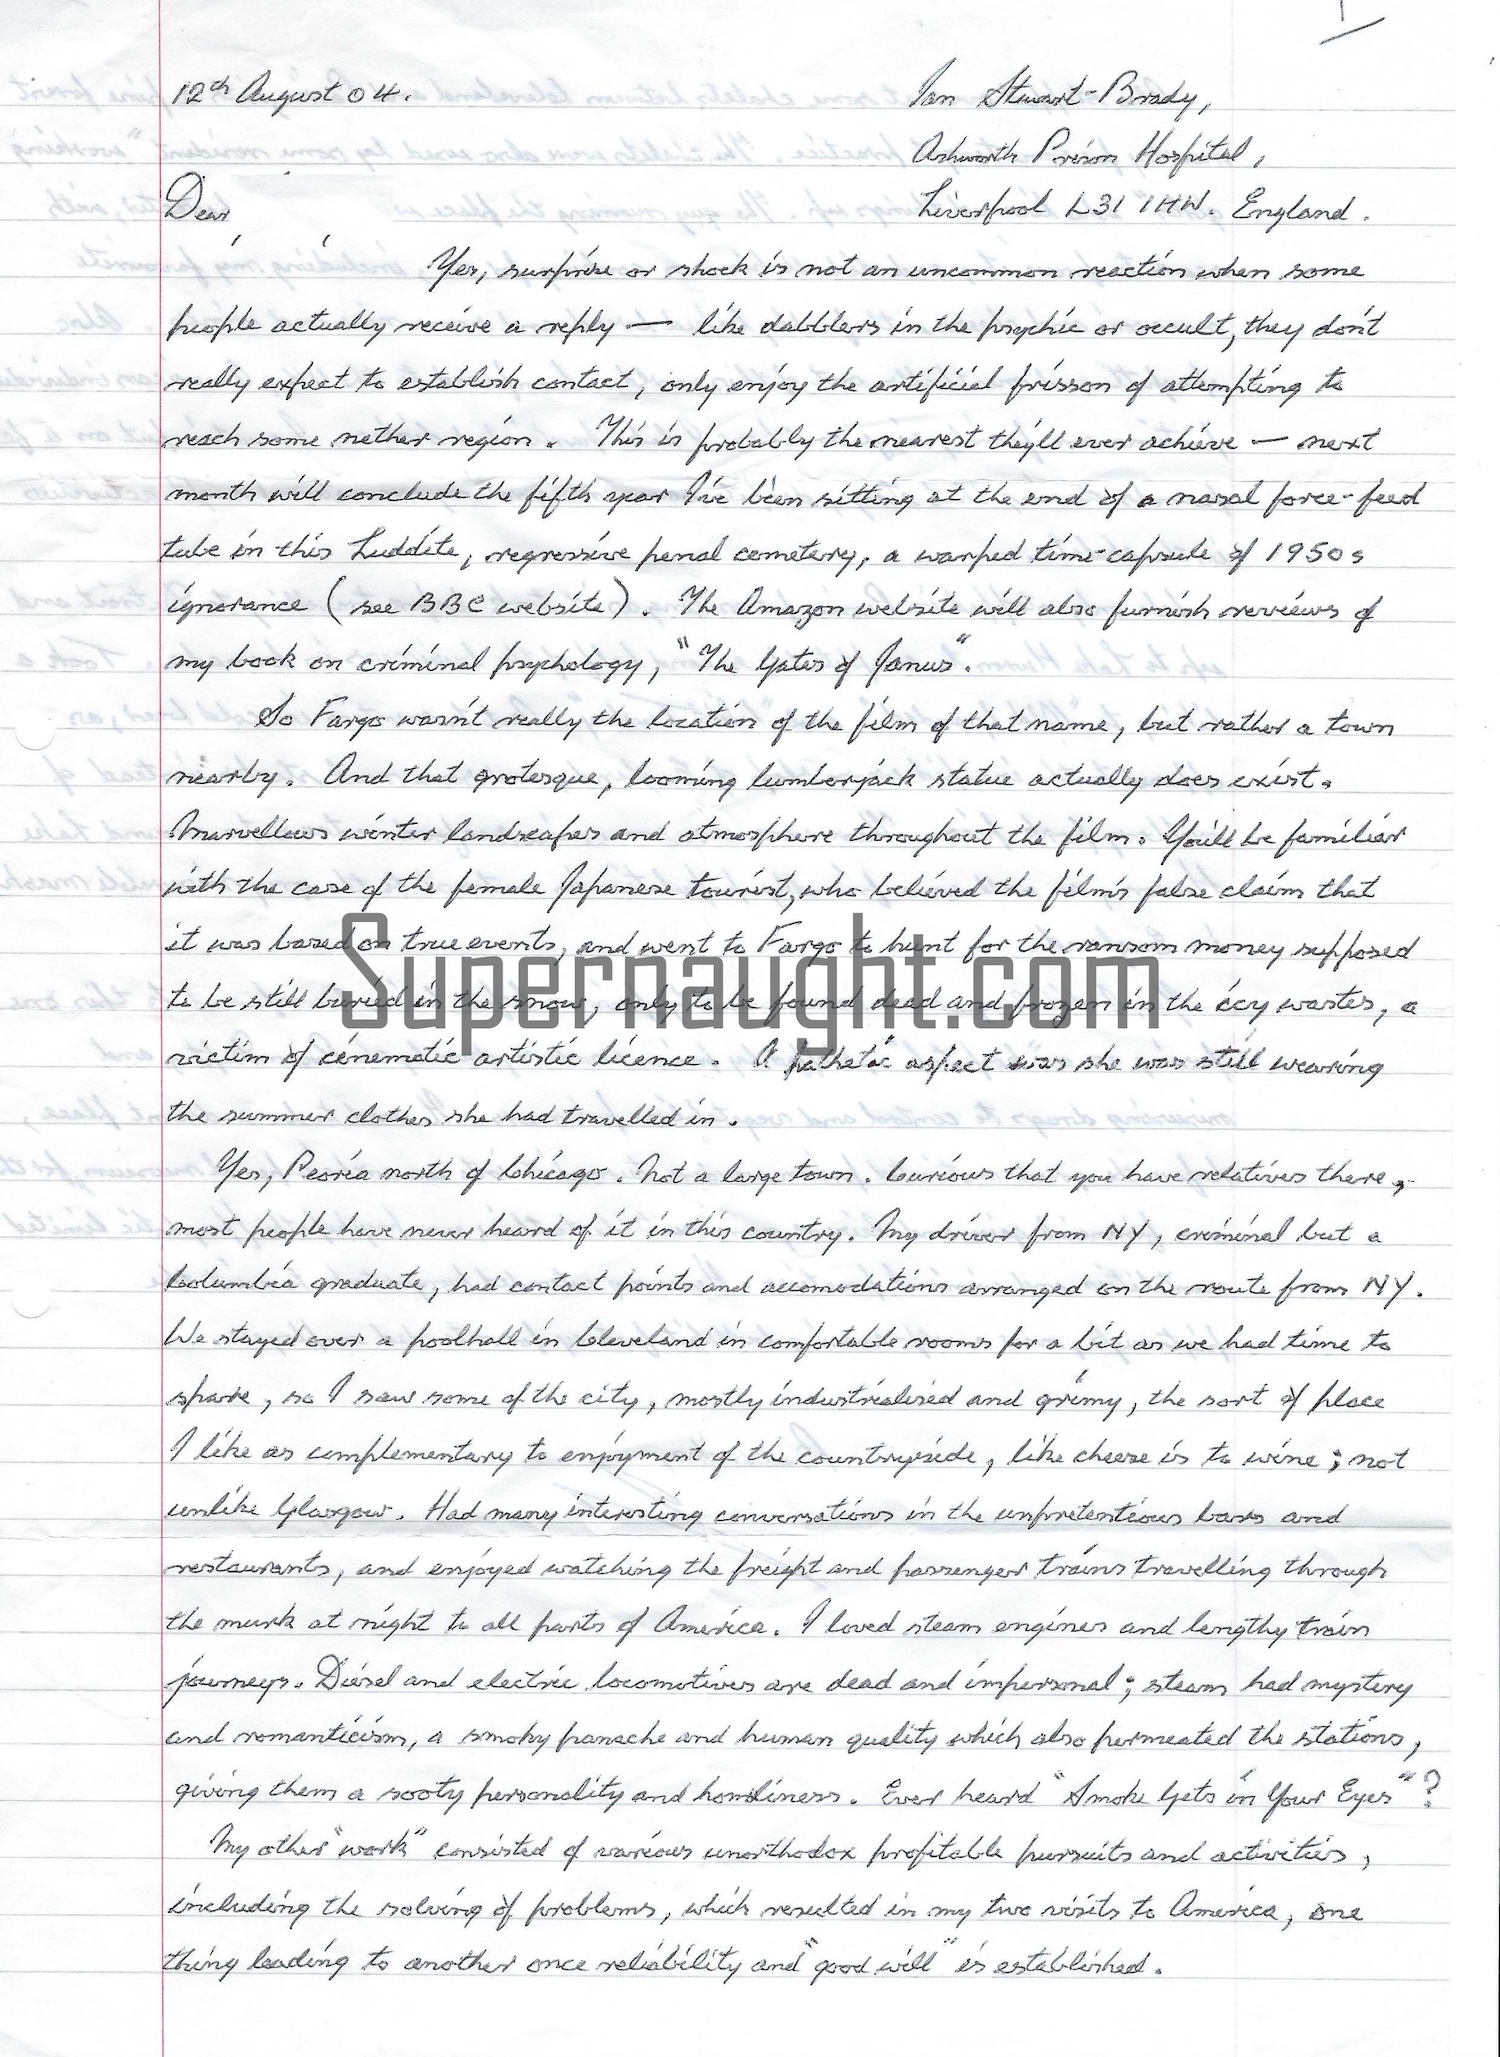 1
12th August 04.
Ian Stewart-Brady,
Ashworth Prison Hospital,
Dear
Liverpool L31 1HW. England.
Yes, surprise or shock is not an uncommon reaction when some
people actually receive a reply — like dabblers in the psychic or occult, they don't
really expect to establish contact, only enjoy the artificial frisson of attempting to
reach some nether region. This is probably the nearest they'll ever achieve — next
month will conclude the fifth year I've been sitting at the end of a nasal force-feed
tube in this Luddite, regressive penal cemetery, a warped time-capsule of 1950s
ignorance (see BBC website). The Amazon website will also furnish reviews of
my book on criminal psychology, "The Gates of Janus".
So Fargo wasn't really the location of the film of that name, but rather a town
nearby. And that grotesque, looming lumberjack statue actually does exist.
Marvellous winter landscapes and atmosphere throughout the film. You'll be familiar
with the case of the female Japanese tourist, who believed the film's false claim that
it was based on true events, and went to Fargo to hunt for the ransom money supposed
to be still buried in the snow, only to be found dead and frozen in the icy wastes, a
victim of cinematic artistic licence. A pathetic aspect was she was still wearing
the summer clothes she had travelled in.
Supernaught.com
Yes, Peoria north of Chicago. Not a large town. Curious that you have relatives there,
most people have never heard of it in this country. My driver from NY, criminal but a
Columbia graduate, had contact points and accomodations arranged on the route from NY.
We stayed over a poolhall in Cleveland in comfortable rooms for a bit as we had time to
spare, so I saw some of the city, mostly industrialised and grimy, the sort of place
I like as complementary to enjoyment of the countryside, like cheese is to wine; not
unlike Glasgow. Had many interesting conversations in the unpretentious bars and
restaurants, and enjoyed watching the freight and passenger trains travelling through
the murk at night to all parts of America. I loved steam engines and lengthy train
journeys. Diesel and electric locomotives are dead and impersonal; steam had mystery
and romanticism, a smoky panache and human quality which also permeated the stations,
giving them a sooty personality and homliness. Ever heard "Smoke Gets in Your Eyes"?
My other "work" consisted of various unorthodox profitable pursuits and activities,
including the solving of problems, which resulted in my two visits to America, one
thing leading to another once reliability and "good will" is established.